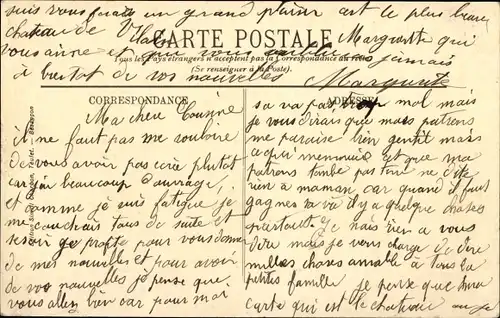 suis vous ferais un grand plaisir est le plus beau
chateau de Marguerite qui
vous aime et que vous jamais
à bientot de vos nouvelles Marguerite
CARTE POSTALE
Tous les Pays étrangers n'acceptent pas la Correspondance au
(Se renseigner à la Poste).
CORRESPONDANCE
Ma chère Cousine
il ne faut pas me vouloire
de vous avoir pas crée plutot
car j'ai beaucoup d'ouvrage,
et comme je suis fatigue je
me couchais tous de suite et
se soir je profite pour vous donner
de mes nouvelles et pour avoir
de vos nouvelles je pense que
vous allez bien car pour moi
ADRESSE
sa va pas trop mal mais
je vous dirais que mais patrons
me paraise bien gentit mais
ce qui m'ennuie et que ma
patrons tombe pas ne dite
rien à maman car quand il faut
gagner sa vie il y a quelque choses
partout je nais rien a vous
dire mais je vous charge de dire
milles choses aimable à tous la
petites famille je pense que ma
carte qui est le chateau